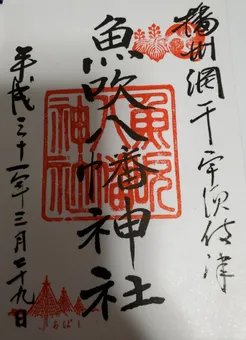 播州網干宇須伎津
魚吹八幡神社
魚吹八幡神社
平成三十一年三月二十九日
あぼし